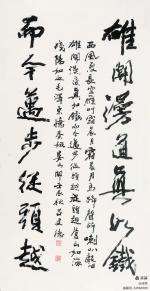 雄關漫道真如鐵
西風烈長空雁叫霜晨月霜晨月馬蹄聲碎喇叭聲咽
雄關漫道真如鐵而今邁步從頭越從頭越蒼山如海
殘陽如血毛澤東憶秦娥婁山關壬辰秋
而今邁步從頭越